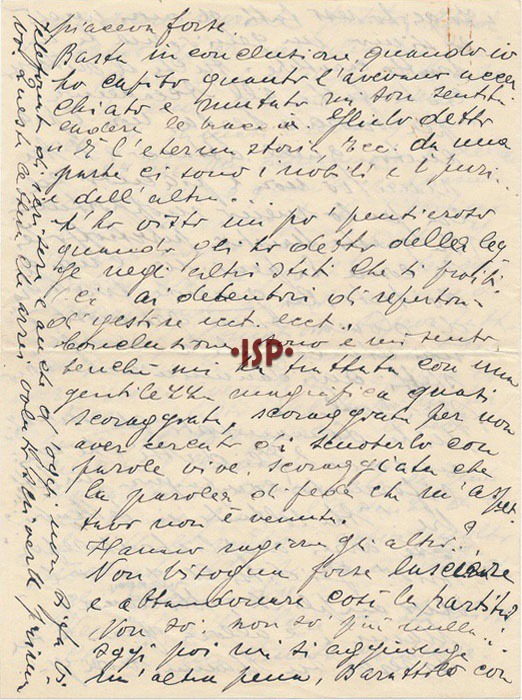 piaceva forse.
Basta in conclusione quando io
ho capito quanto l'avevano
chiato e mutato mi son sentita
cadere le braccia. Glielo detto
l'eterna storia, da una
parte ci sono i nobili e i
e dall'altra...
L'ho visto un po' pensieroso
quando gli ho detto della leg
ge negli altri stati che
ai detentori di repertori
di gestire ecct. ecct.
Conclusione sono e mi sento
benché mi ha trattata con una
gentilezza magnifica quasi
scoraggiata, scoraggiata per non
aver cercato di scuoterlo con
parole vive. scoraggiata che
la parola di fede che m'aspet
tavo non è venuta.
Hanno ragione gli altri?
Non bisogna forse lasciare
e abbandonare così la partita?
Non so! non so più nulla...
oggi poi mi si aggiunge
un'altra pena, Barattolo con
telefonata di ieri sera e anche di oggi non
Questa lettera che avrei voluto scriverle prima
ISP